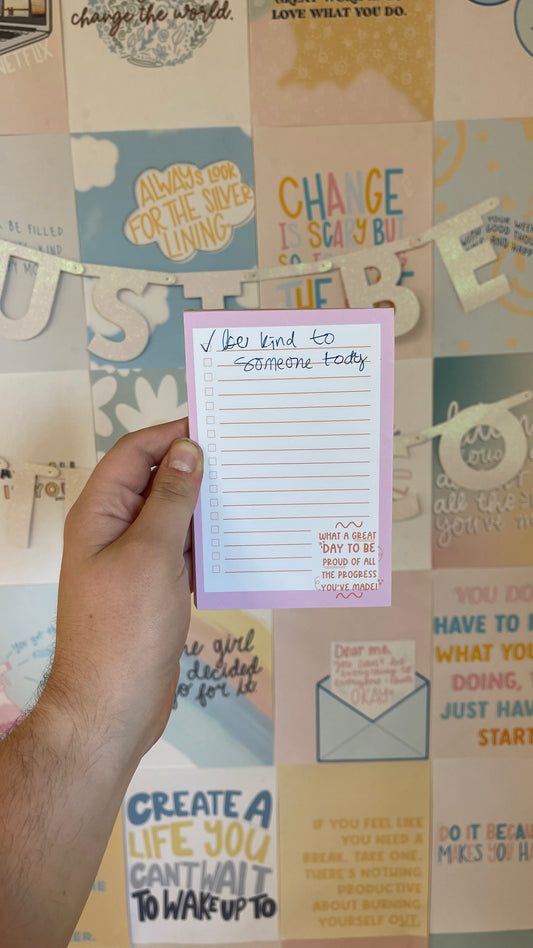 NETFLIX
change the world.
LOVE WHAT YOU DO.
ALWAYS LOOK
FOR THE SILVER
LINING
CHANGE
IS SCARY BUT
SO IS
THE
BE FILLED
YOUR WEEK
WITH GOOD THOUGHTS
UST BE
be kind to
someone today
WHAT A GREAT
DAY TO BE
PROUD OF ALL
THE PROGRESS
YOU'VE MADE!
all the
you've
girl
decided
go for it
Dear me,
you don't
everything to
everyone
OKAY
YOU DO
HAVE TO
WHAT YOU
DOING,
JUST HAV
START
CREATE A
LIFE YOU
CANT WAIT
TO WAKE UP TO
IF YOU FEEL LIKE
YOU NEED A
BREAK, TAKE ONE.
THERE'S NOTHING
PRODUCTIVE
ABOUT BURNING
YOURSELF OUT.
DO IT BECAU
MAKES YOU HA